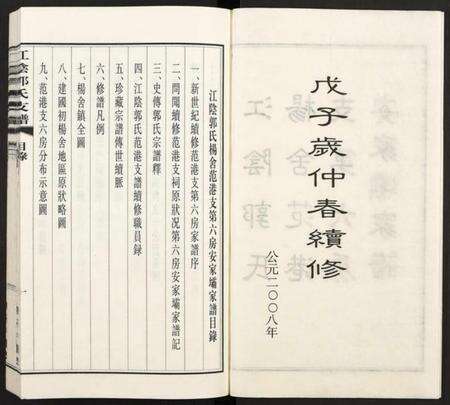 戊子歲仲春續修
公元二〇〇八年
江陰郭氏楊舍范港支第六房安家壩家譜目錄
一、新世紀續修范港支第六房家譜序
二、聞聞續修范港支祠原狀況第六房安家壩家譜記
三、史傳郭氏宗譜釋
四、江陰郭氏范港支譜續修職員錄
五、珍藏宗譜傳世續脈
六、修譜凡例
七、楊舍鎮全圖
八、建國初楊舍地區原狀略圖
九、范港支六房分布示意圖
江陰郭氏支譜
目錄
一